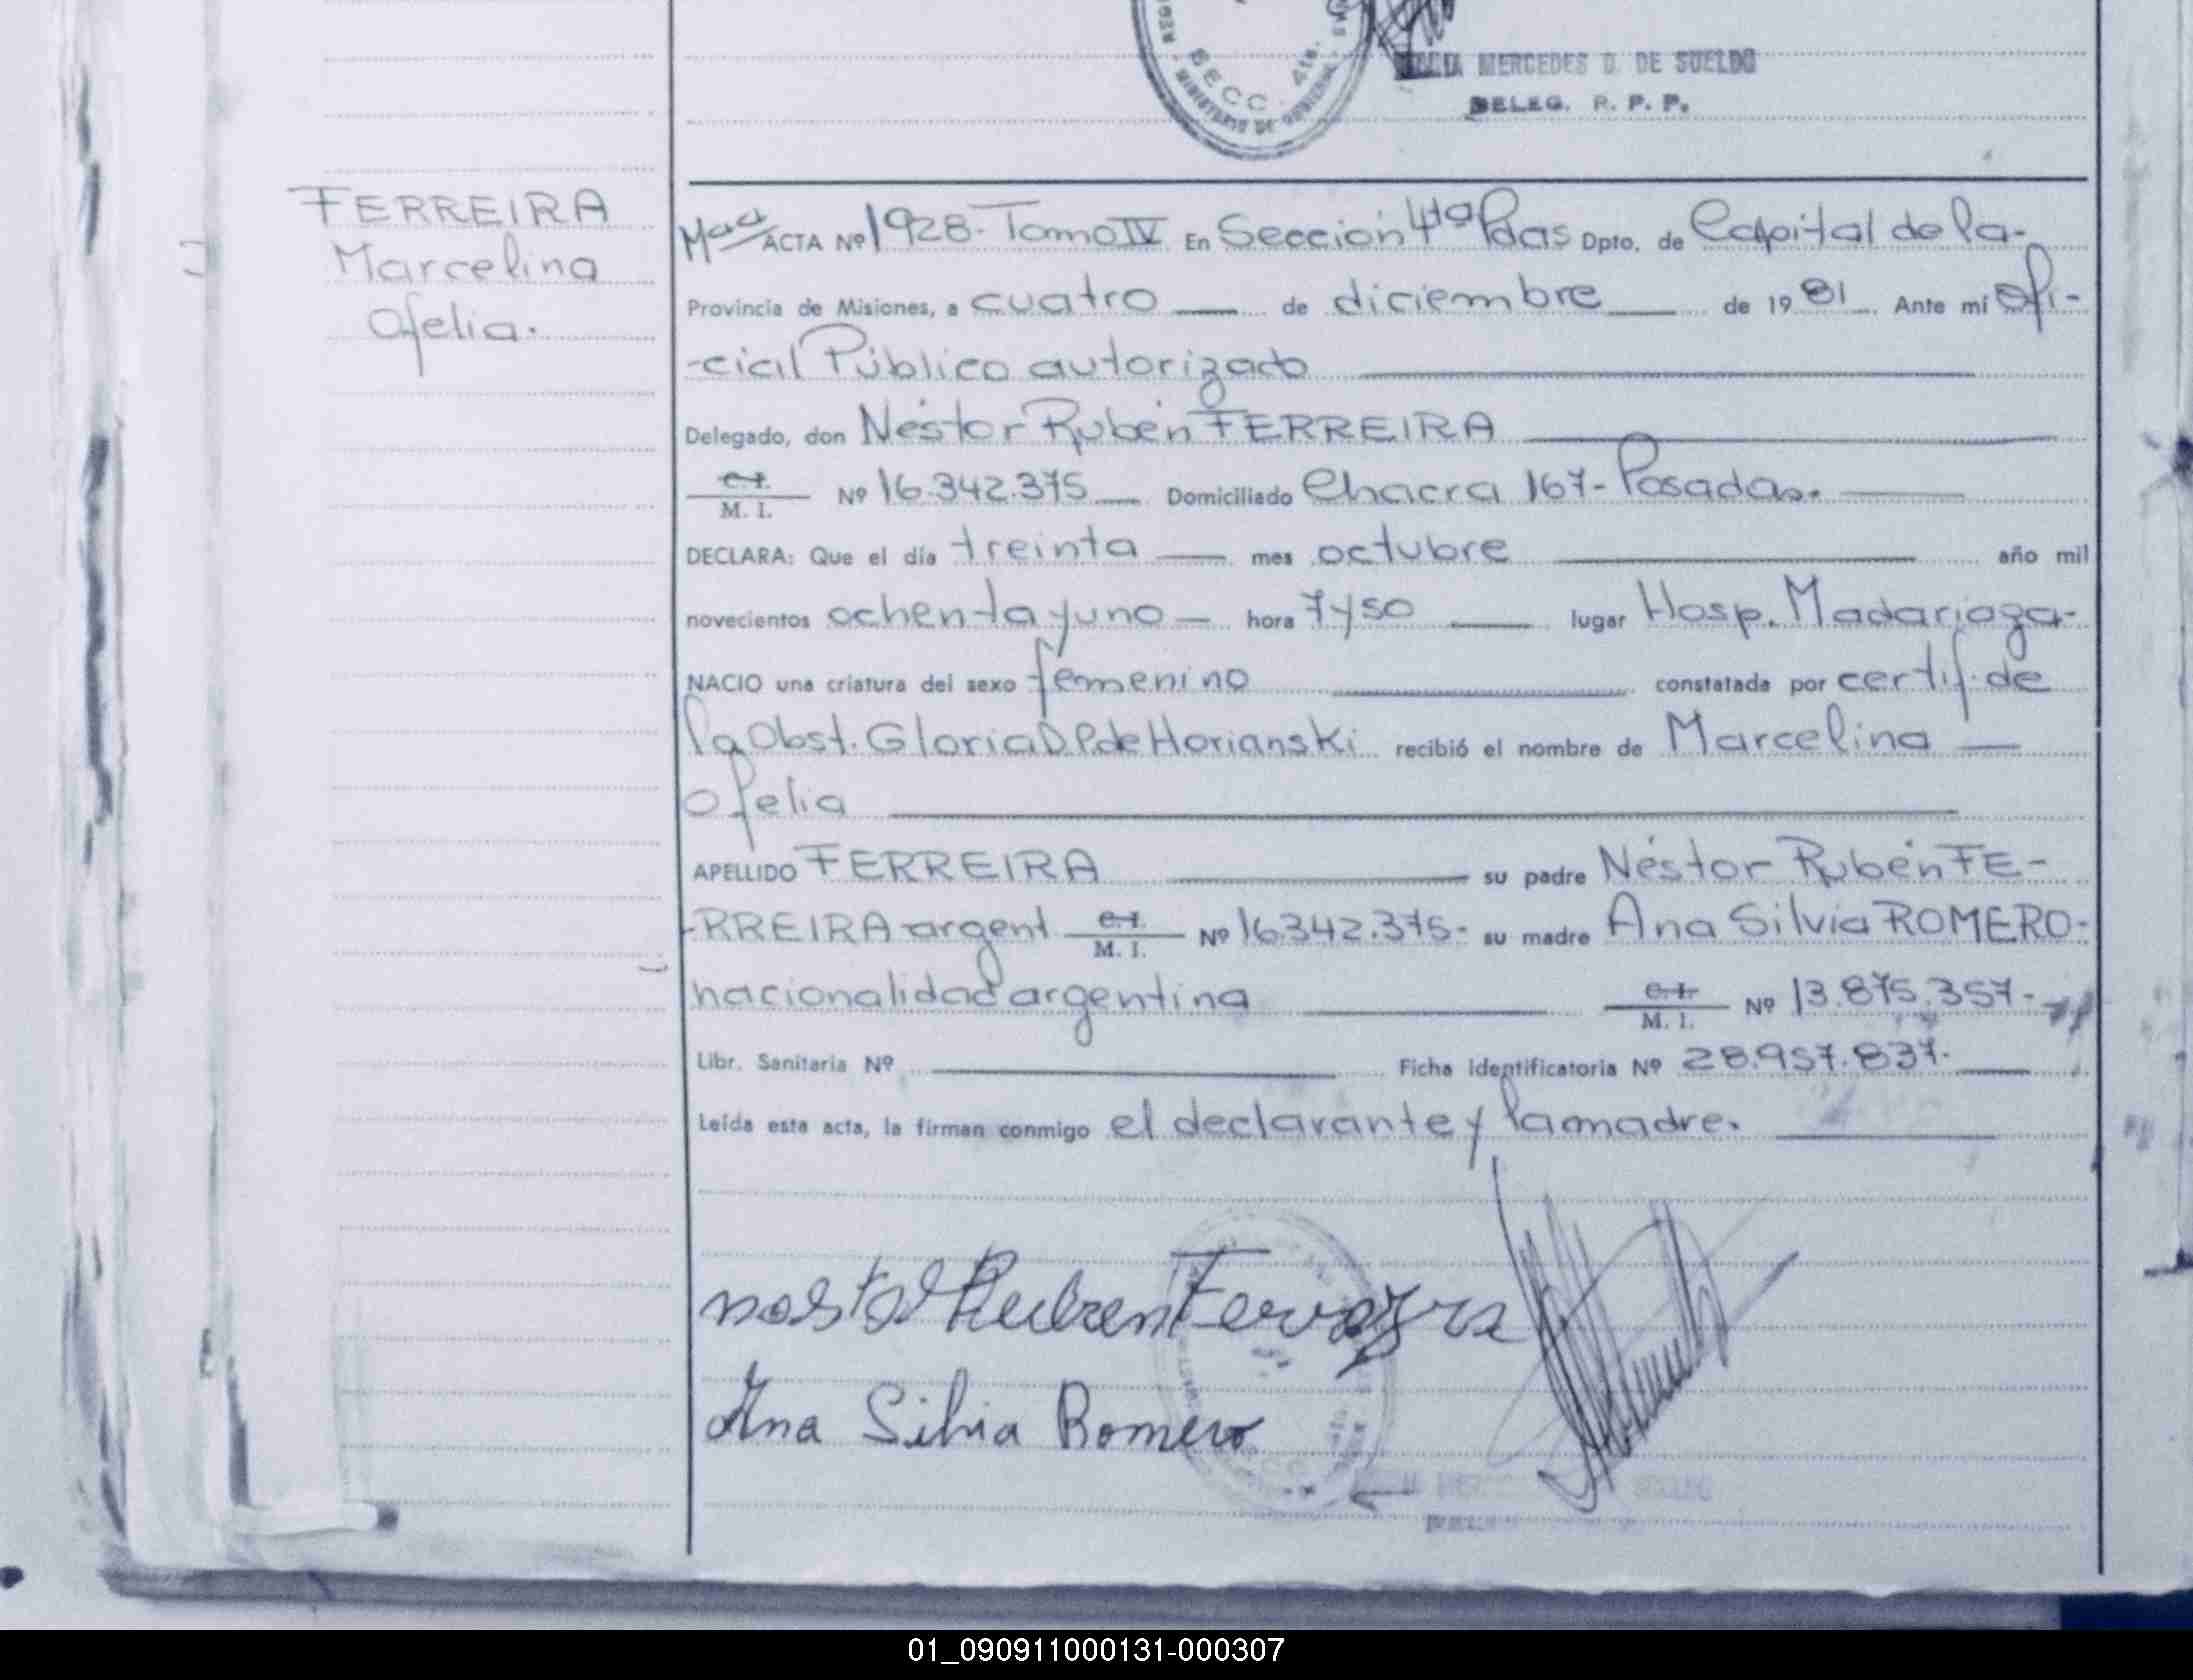 SECC. 4ta.
MINISTERIO DE GOBIERNO
MERCEDES D. DE SUELDO
DELEG. R. P. P.
FERREIRA
Marcelina
Ofelia.
ACTA Nº 1928. Tomo IV En Sección 4ta Pdas Dpto. de Capital de la-
Provincia de Misiones, a cuatro de diciembre de 1981 Ante mí ofi-
-cial Público autorizado
Delegado, don Néstor Rubén FERREIRA
C.I. M. I. Nº 16.342.375 Domiciliado Chacra 167- Posadas.
DECLARA: Que el día treinta mes octubre año mil
novecientos ochenta y uno hora 7 y 50 lugar Hosp. Madariaga-
NACIO una criatura del sexo femenino constatada por certif. de
la Obst. Gloria D.P. de Horianski recibió el nombre de Marcelina
Ofelia
APELLIDO FERREIRA su padre Néstor Rubén FE-
-RREIRA argent C.I. M. I. Nº 16.342.375- su madre Ana Silvia ROMERO-
nacionalidad argentina C.I. M. I. Nº 13.875.357-
Libr. Sanitaria Nº Ficha identificatoria Nº 28.957.837-
Leída esta acta, la firman conmigo el declarante y la madre.
Ana Silvia Romero
01_090911000131-000307